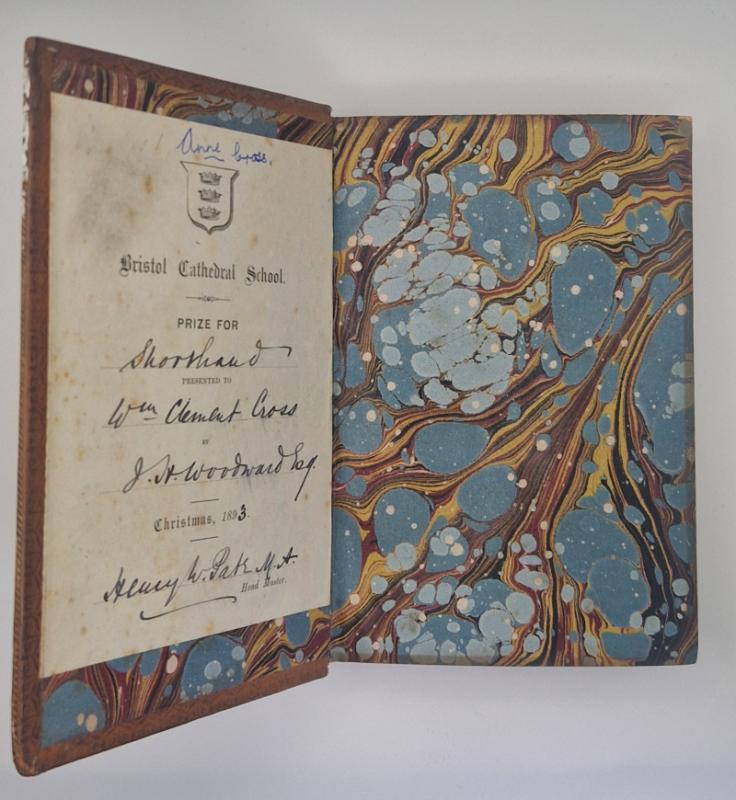 Anne Cross.
Bristol Cathedral School.
PRIZE FOR
Shorthand
PRESENTED TO
Wm Clement Cross
BY
J. H. Woodward Esq.
Christmas, 1893.
Henry W. Pate M.A.
Head Master.